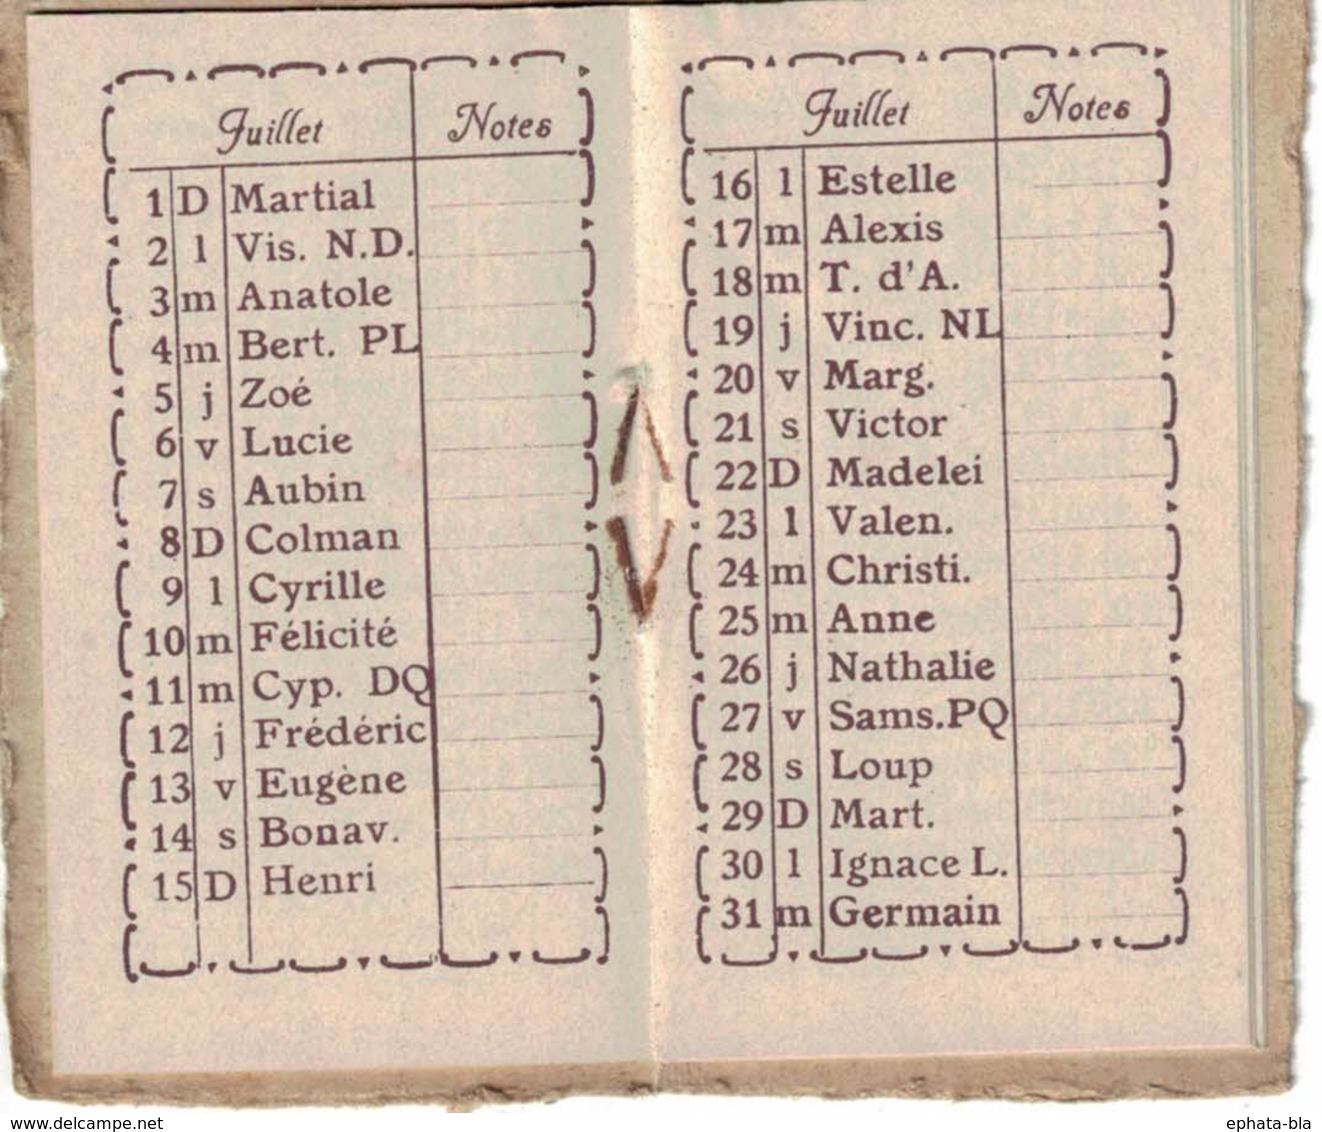 Juillet Notes
1 D Martial
2 l Vis. N.D.
3 m Anatole
4 m Bert. PL
5 j Zoé
6 v Lucie
7 s Aubin
8 D Colman
9 l Cyrille
10 m Félicité
11 m Cyp. DQ
12 j Frédéric
13 v Eugène
14 s Bonav.
15 D Henri
Juillet Notes
16 l Estelle
17 m Alexis
18 m T. d'A.
19 j Vinc. NL
20 v Marg.
21 s Victor
22 D Madelei
23 l Valen.
24 m Christi.
25 m Anne
26 j Nathalie
27 v Sams.PQ
28 s Loup
29 D Mart.
30 l Ignace L.
31 m Germain
www.delcampe.net
ephata-bla